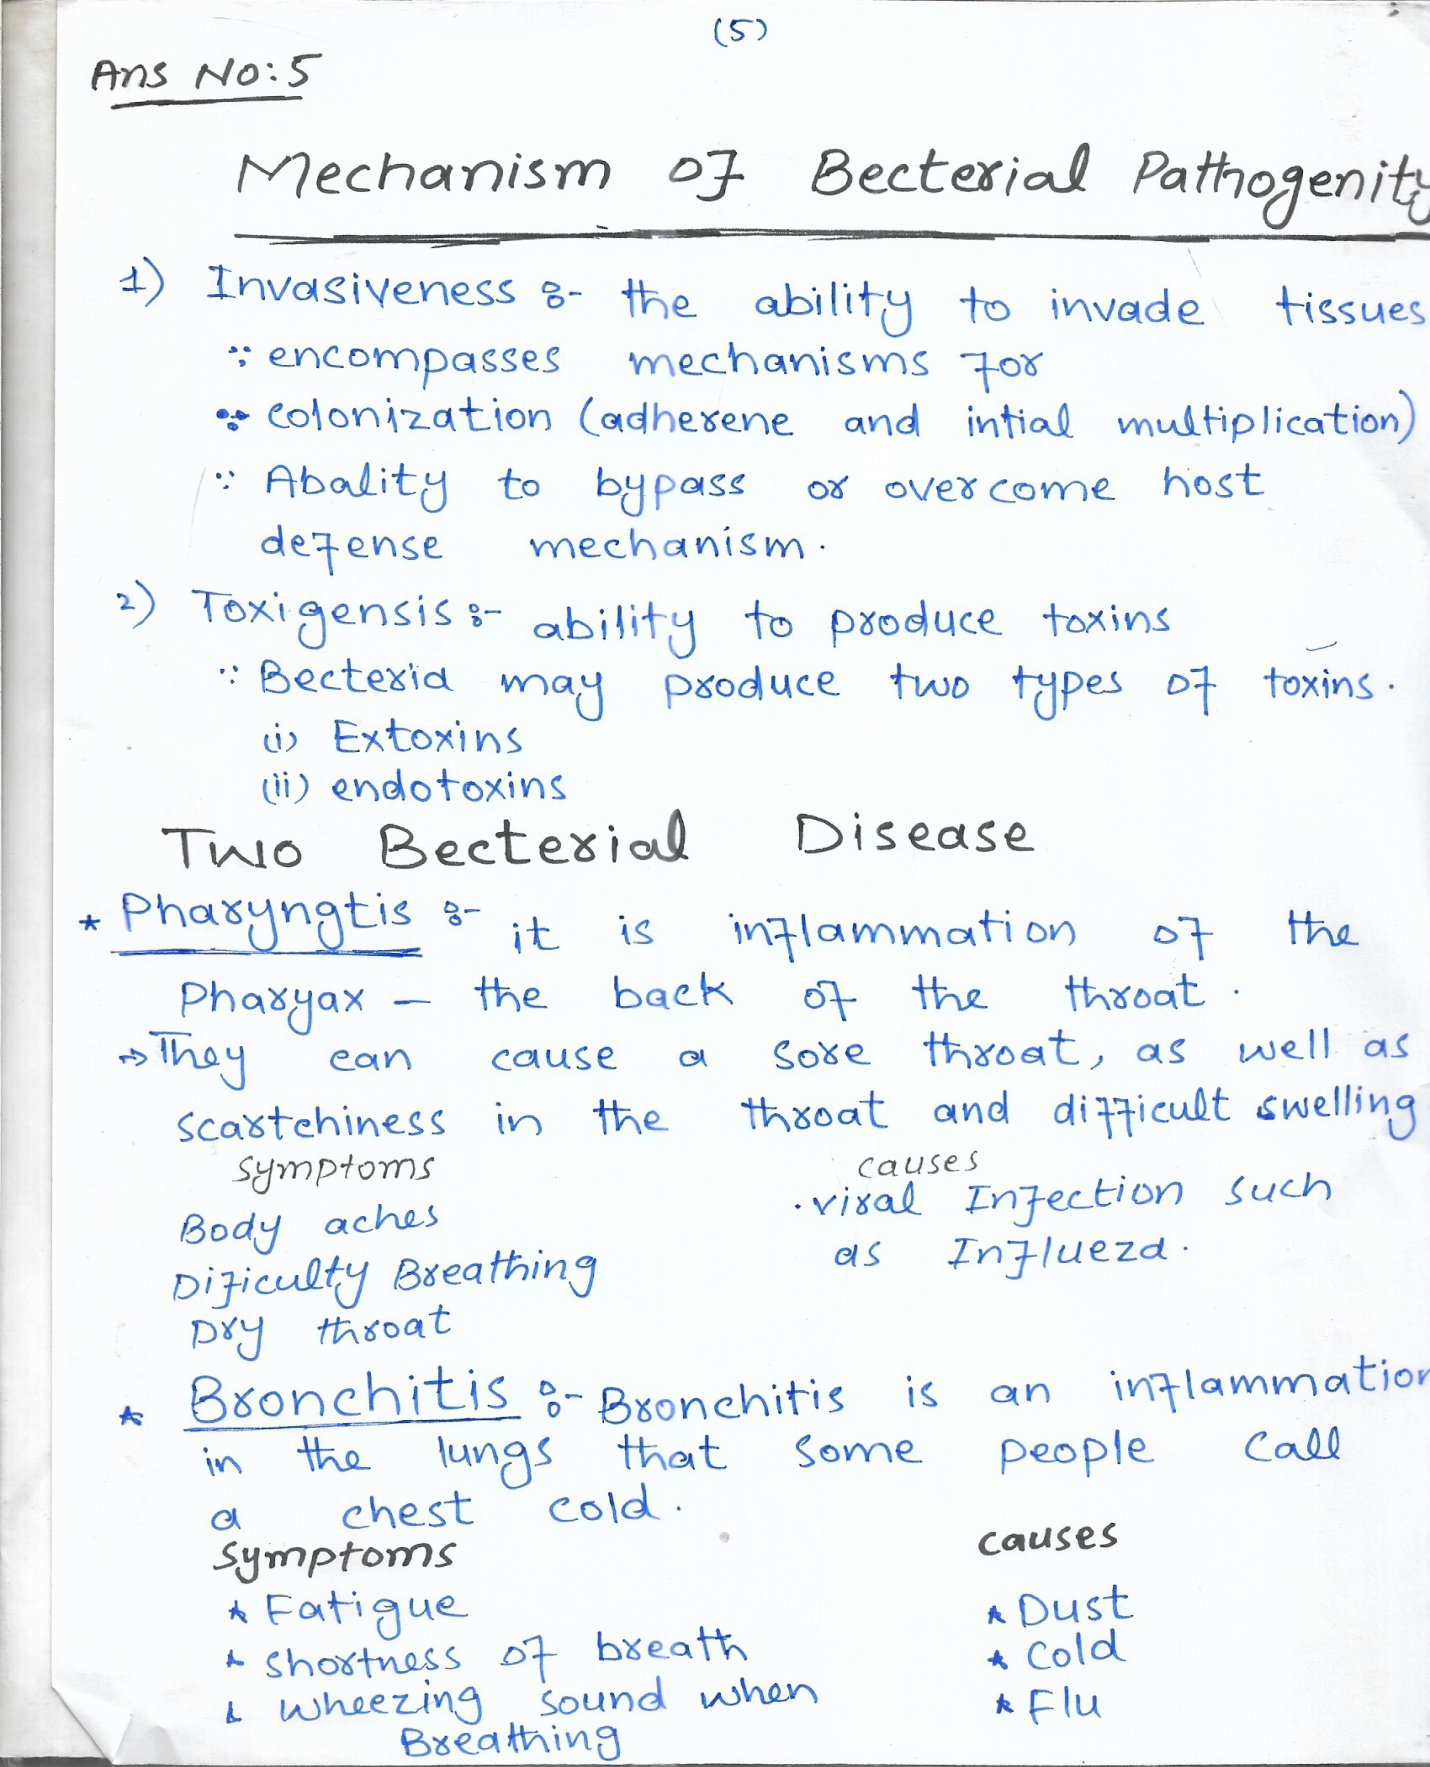 (5)
Ans No:5
Mechanism of Becterial Pathogenity
1) Invasiveness :- the ability to invade tissues
encompasses mechanisms for
colonization (adherene and intial multiplication)
Abality to bypass or overcome host
defense mechanism.
2) Toxigensis :- ability to produce toxins
Becteria may produce two types of toxins.
(i) Extoxins
(ii) endotoxins
Two Becterial Disease
* Pharyngtis :- it is inflammation of the
Pharyax - the back of the throat.
⇒ They can cause a sore throat, as well as
scartchiness in the throat and difficult swelling
Symptoms causes
Body aches . viral Infection such
Dificulty Breathing as Influeza.
Dry throat
* Bronchitis :- Bronchitis is an inflammation
in the lungs that some people call
a chest cold.
Symptoms causes
* Fatigue * Dust
* shortness of breath * cold
* wheezing sound when * Flu
Breathing